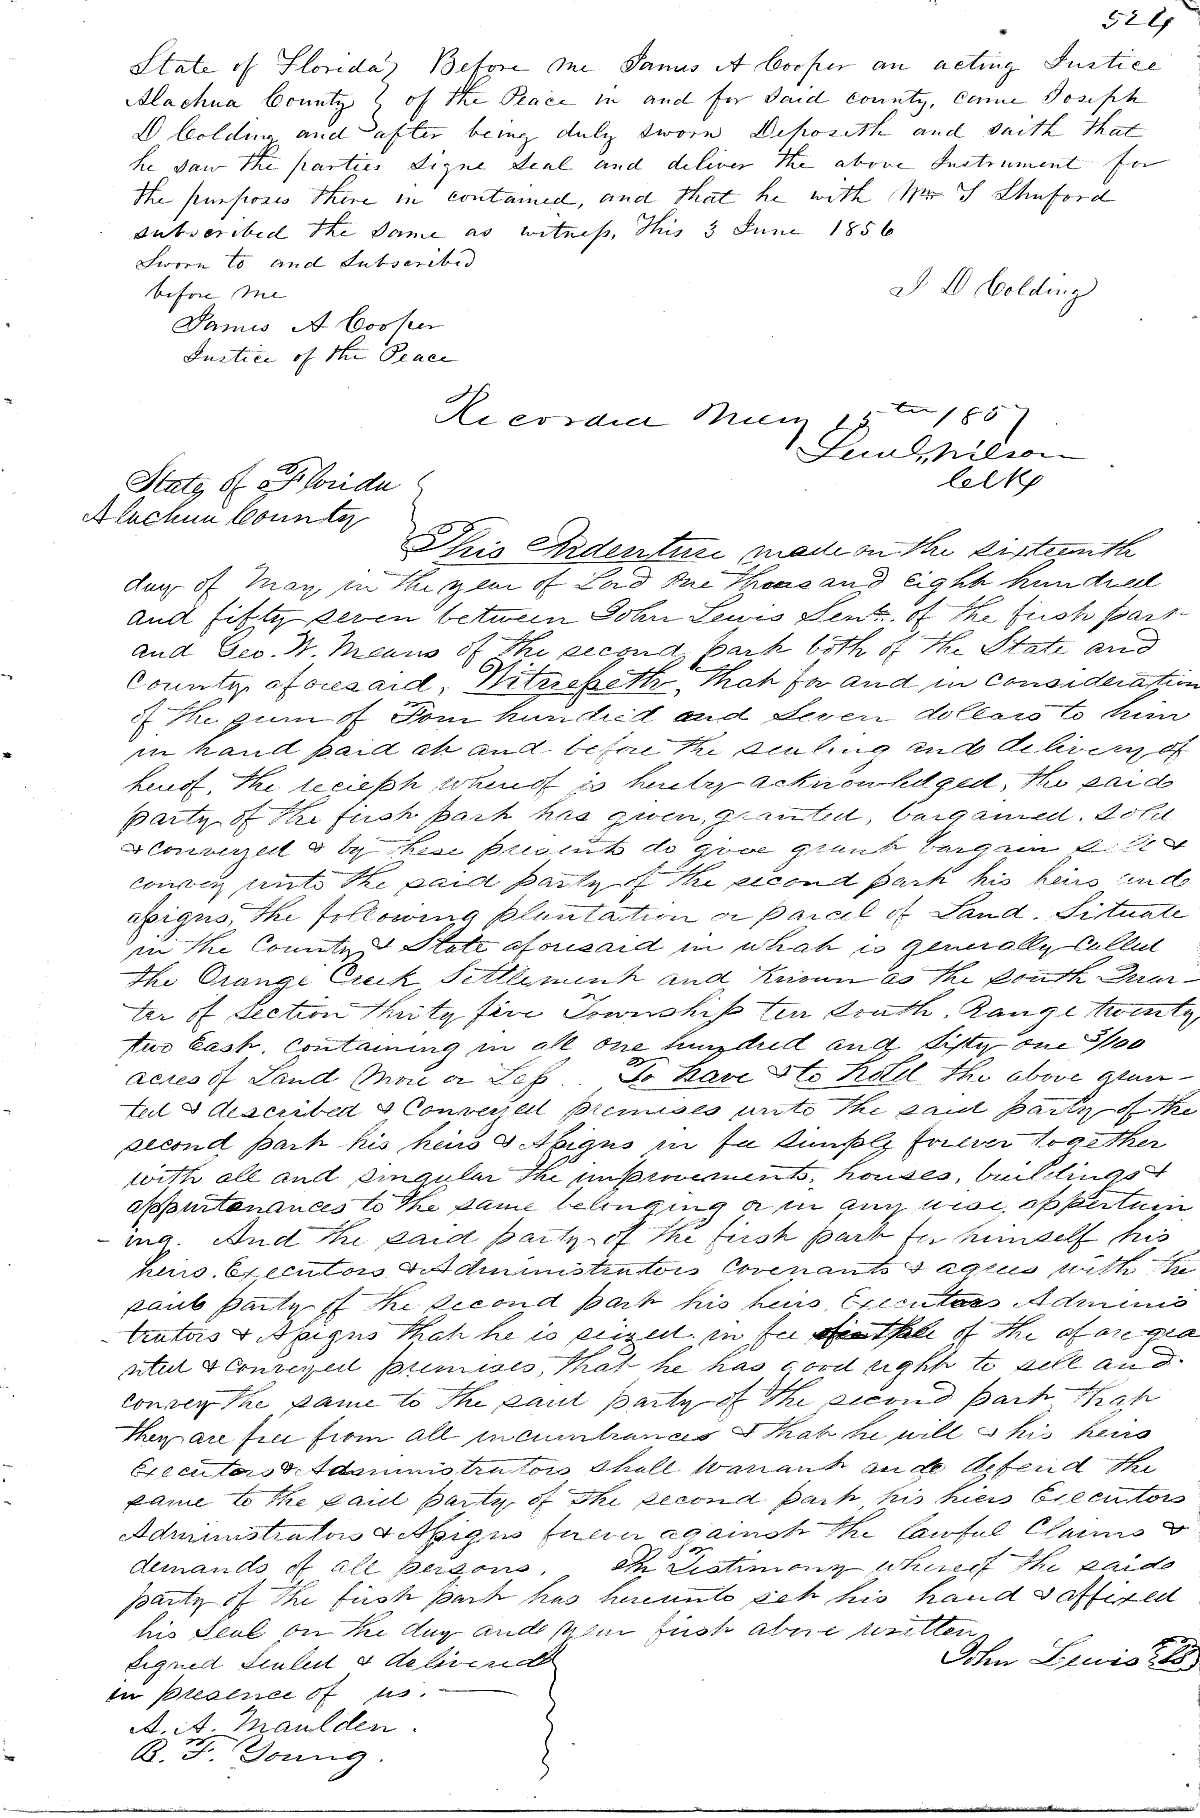 524
State of Florida } Before me James A Cooper an acting Justice
Alachua County } of the Peace in and for said county, came Joseph
D Colding and after being duly sworn Deposeth and saith that
he saw the parties signe seal and deliver the above Instrument for
the purposes there in contained, and that he with Wm T Shuford
subscribed the same as witness, This 3 June 1856
Sworn to and Subscribed
before me
J D Colding
James A Cooper
Justice of the Peace
Recorded May 15th 1857
Wilson
Clk
State of Florida
Alachua County
This Indenture made on the sixteenth
day of May in the year of Lord one thousand eight hundred
and fifty seven between John Lewis Senr. of the first part
and Geo. W. Means of the second part both of the State and
County aforesaid, Witnesseth, That for and in consideration
of the sum of Four hundred and seven dollars to him
in hand paid at and before the sealing and delivery of
hereof, the reciept whereof is hereby acknowledged, the said
party of the first part has given, granted, bargained, sold
& conveyed & by these presents do give grant bargain sell &
convey unto the said party of the second part his heirs and
assigns, the following plantation or parcel of Land. Situate
in the County & State aforesaid in what is generally called
the Orange Creek Settlement and Known as the south Quar-
ter of Section thirty five Township ten south, Range twenty
two East, containing in all one hundred and sixty one 3/100
acres of Land More or Less. To have & to hold the above gran-
ted & described & Conveyed premises unto the said party of the
second part his heirs & Assigns in fee simple forever together
with all and singular the improvements, houses, buildings &
appurtenances to the same belonging or in any wise appertain
- ing. And the said party of the first part for himself his
heirs, Executors & Administrators covenants & agrees with the
said party of the second part his heirs, Executors Adminis
- trators & Assigns that he is seized in fee simple of the afore gra
nted & conveyed premises, that he has good right to sell and
convey the same to the said party of the second part that
they are free from all incumbrances & that he will & his heirs
Executors & Administrators shall warrant and defend the
same to the said party of the second part his hiers Executors
Administrators & Assigns forever against the lawful Claims &
demands of all persons. In Testimony whereof the said
party of the first part has hereunto set his hand & affixed
his Seal on the day and year first above written
Signed sealed & delivered
John Lewis
in presence of us.
A. A. Maulden.
B. F. Young.